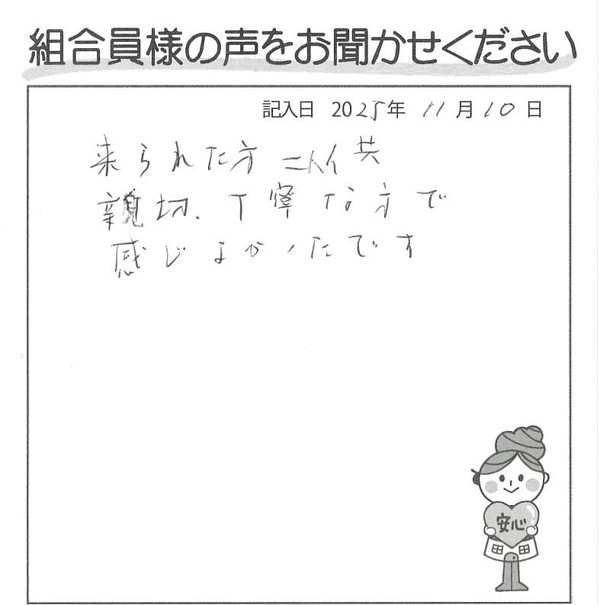 組合員様の声をお聞かせください
記入日 2025年 11月 10日
来られた方 二人共
親切、丁寧な方で
感じよかったです
安心